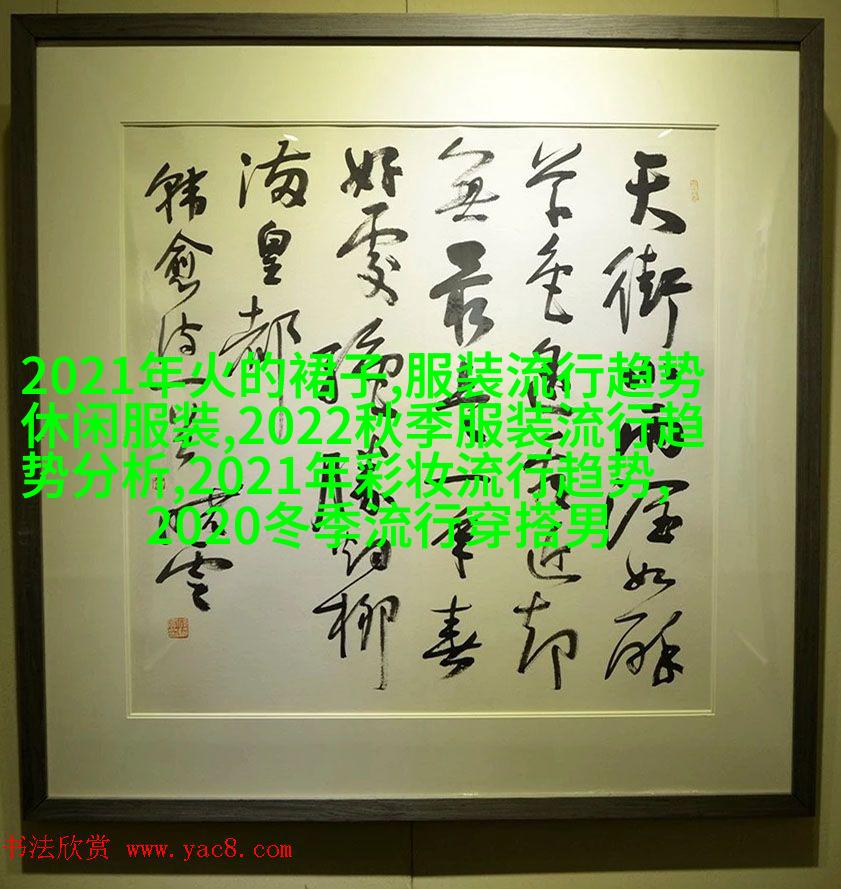 2021年火的裙子,服装流行趋势
休闲服装,2022秋季服装流行趋
势分析,2021年彩妆流行趋势,
2020冬季流行穿搭男
天街小雨润如酥
草色遥看近却
無最是一年春
好處絶勝煙柳
满皇都
韩愈诗一首 雲
书法欣赏 www.yac8.com